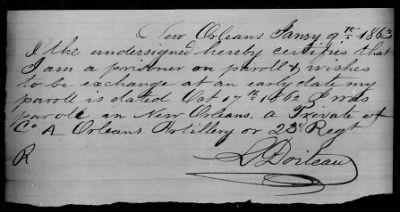 New Orleans Janry 9th 1863
I the undersigned hereby certifies that
I am a prisoner on paroll & wishes
to be exchange at an early date my
paroll is dated Oct 17th 1862 I was
parole in New Orleans. a Private of
Co A Orleans Artillery or 23d Regt
R
Boileau